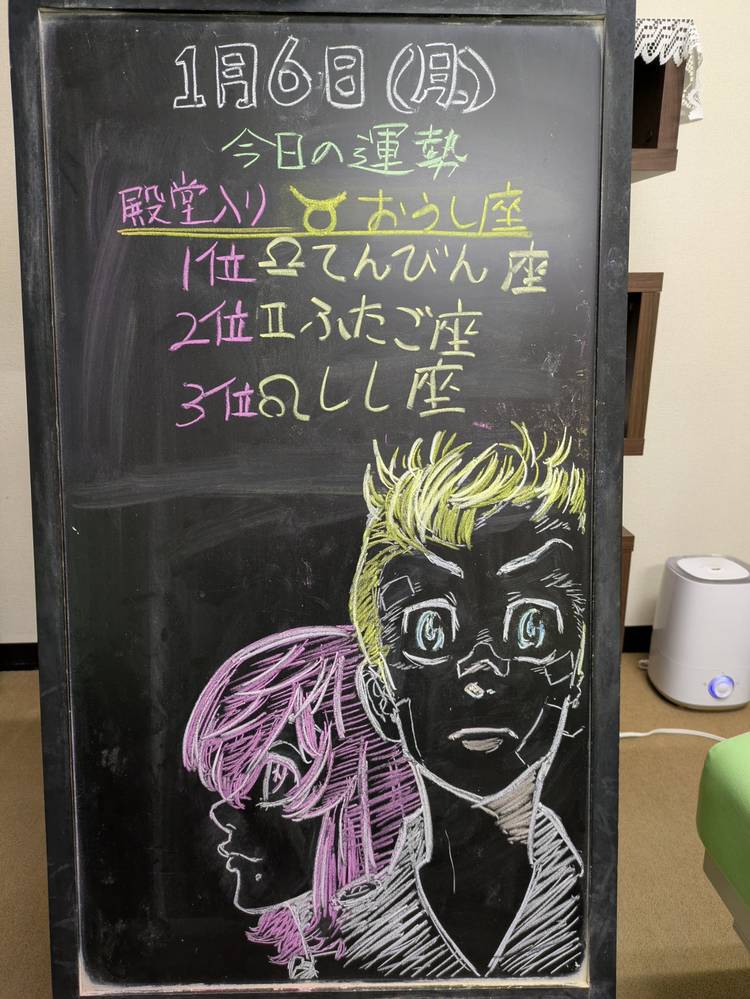 1月6日(月)
今日の運勢
殿堂入り ♉ おうし座
1位 ♎ てんびん座
2位 ♊ ふたご座
3位 ♌ しし座